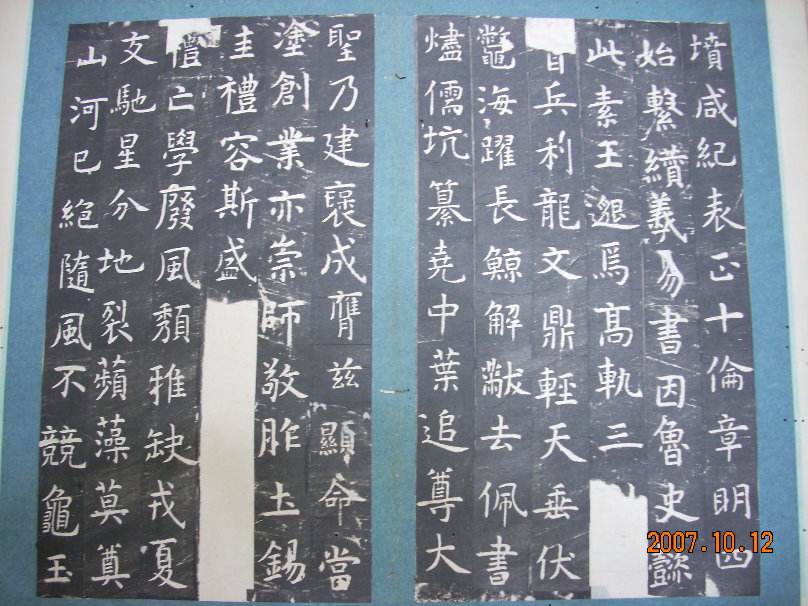 墳咸紀表正十倫章明四
始繫續羲易書因魯史懿
此素王邈焉高軌三
首兵利龍文鼎輕天垂伏
鼈海躍長鯨解黻去佩書
燼儒坑纂堯中葉追尊大
聖乃建襃成膺兹顯命當
塗創業亦崇師敬胙土錫
圭禮容斯盛
禮亡學廢風頽雅缺戎夏
交馳星分地裂蘋藻莫奠
山河已絕隨風不競龜玉
2007.10.12